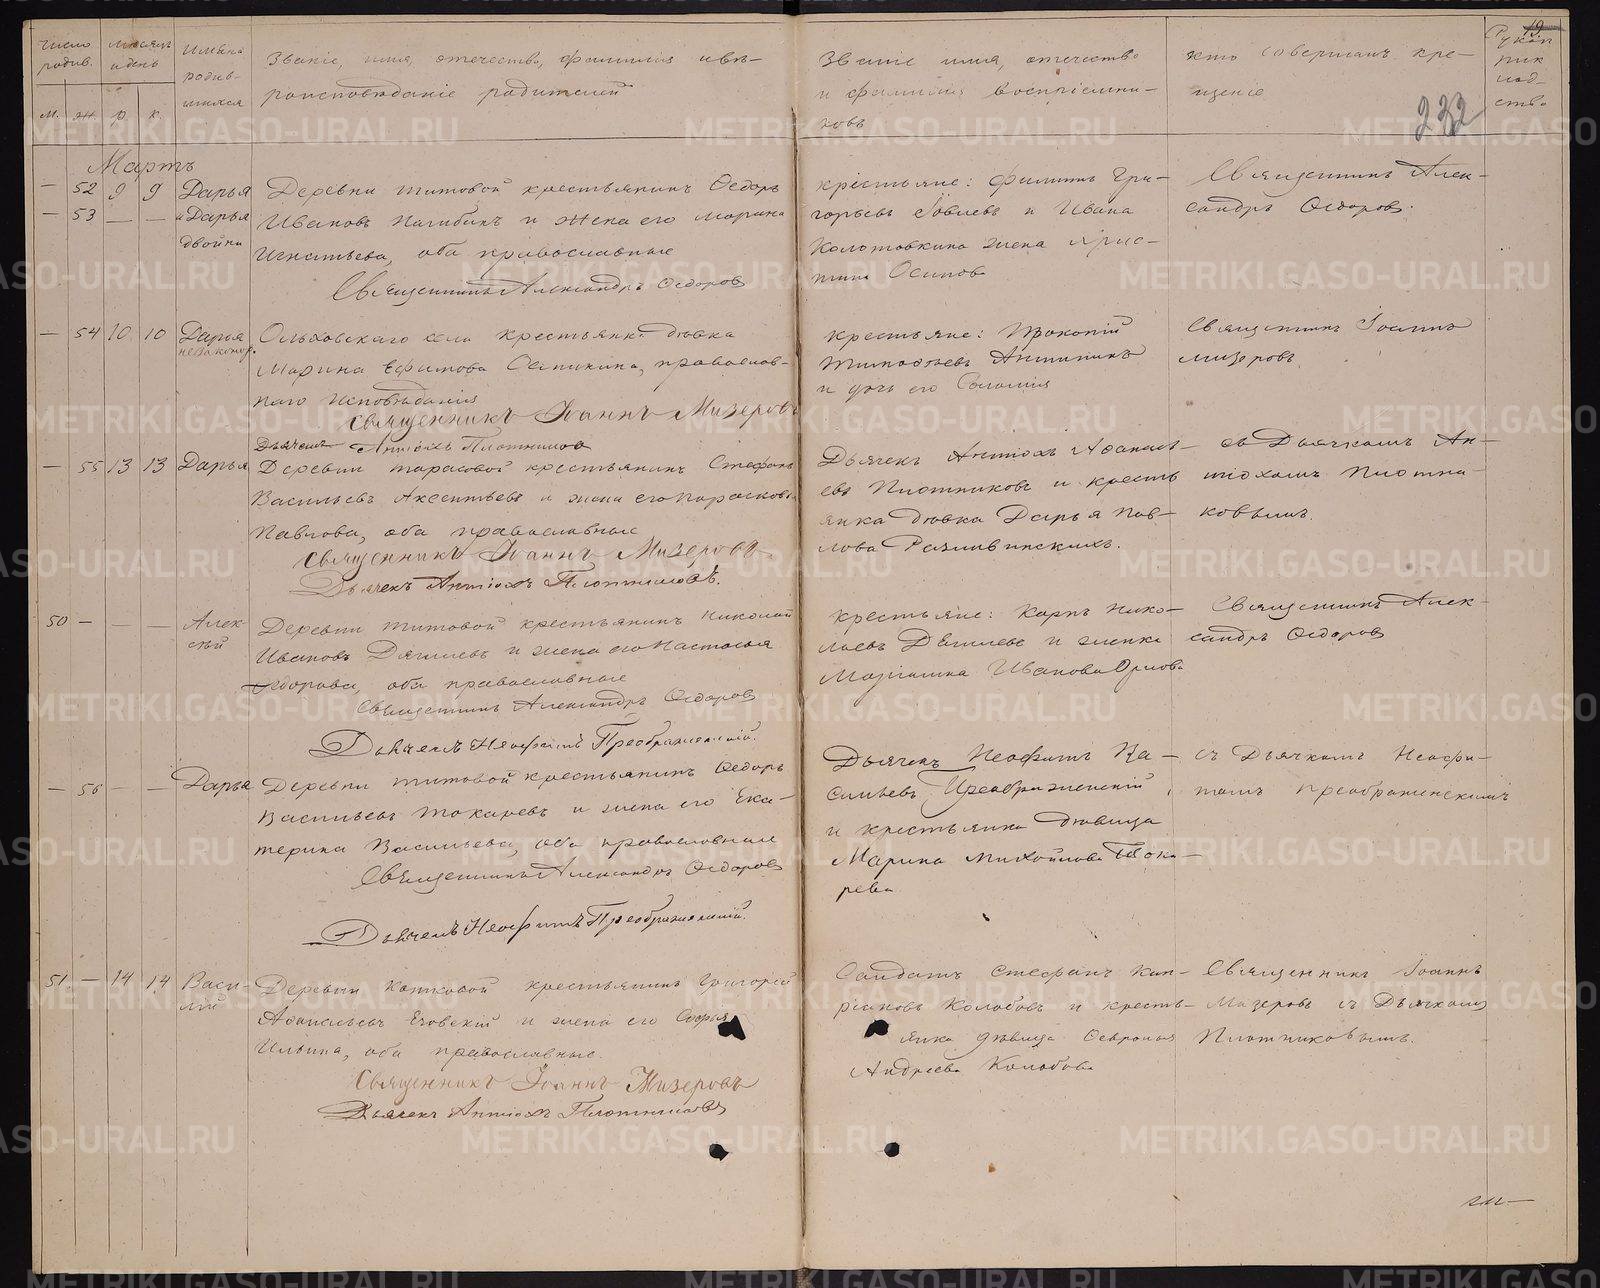 19
232
Число родив.
Месяцъ и день
Имена родив-
шихся
Званіе, имя, отечество, фамилія и вѣ-
роисповѣданіе родителей
Званіе имя, отечество
и фамилія воспріемни-
ковъ
Кто совершалъ кре-
щеніе
Рукоп
рик
лод
ство
м. ж. р. к.
Мартъ
— 52 9 9 Дарья
— 53 — — и Дарья
двойни
Деревни Титовой крестьянинъ Ѳедоръ
Ивановъ Нагибинъ и жена его Марина
Игнатьева, оба православные
Священникъ Александръ Ѳедоровъ
крестьяне: Филиппъ Гри-
горьевъ и Ивана
Колотовкина жена Хрис-
тина Осипова
Священникъ Алек-
сандръ Ѳедоровъ.
— 54 10 10 Дарья
незаконор.
Ольховскаго села крестьянк. дѣвка
Марина Ефимова, православ-
наго исповѣданія
Священникъ Іоаннъ Мизеровъ
Дьячекъ Антіохъ Плотниковъ
крестьяне: Прокопій
Тимофѣевъ Антипинъ
и дочь его Соломія
Священникъ Іоаннъ
Мизеровъ.
— 55 13 13 Дарья
Деревни Тарасовой крестьянинъ Стефанъ
Васильевъ Аксентьевъ и жена его Парасковья
Павлова, оба православные
Священникъ Іоаннъ Мизеровъ
Дьячекъ Антіохъ Плотниковъ.
Дьячекъ Антіохъ Аѳанась-
евъ Плотниковъ и кресть
янка дѣвка Дарья Пав-
лова
съ Дьячкомъ Ан-
тіохомъ Плотни-
ковымъ.
50 — — — Алек-
сѣй
Деревни Титовой крестьянинъ Николай
Ивановъ Дягилевъ и жена его Настасья
Ѳедорова, оба православные
Священникъ Александръ Ѳедоровъ
Дьячекъ Неофитъ Преображенскій.
крестьяне: Карпъ Нико-
лаевъ Дягилевъ и женка
Ивановна Орлова
Священникъ Алек-
сандръ Ѳедоровъ
— 56 — — Дарья
Деревни Титовой крестьянинъ Ѳедоръ
Васильевъ Токаревъ и жена его Ека-
терина Васильева, оба православные
Священникъ Александръ Ѳедоровъ
Дьячекъ Неофитъ Преображенскій.
Дьячекъ Неофитъ Ва-
сильевъ Преображенскій
и крестьянка дѣвица
Марина Михайлова Тока-
рева
съ Дьячкомъ Неофи-
томъ Преображенскимъ
51 — 14 14 Васи-
лій
Деревни крестьянинъ Григорій
Аѳанасьевъ и жена его Софья
Ильина, оба православные.
Священникъ Іоаннъ Мизеровъ
Дьячекъ Антіохъ Плотниковъ
Солдатъ Стефанъ Кип-
ріановъ Колобовъ и кресть-
янка дѣвица Ѳевронья
Андреева Колобова
Священникъ Іоаннъ
Мизеровъ съ Дьячкомъ
Плотниковымъ.
METRIKI.GASO-URAL.RU